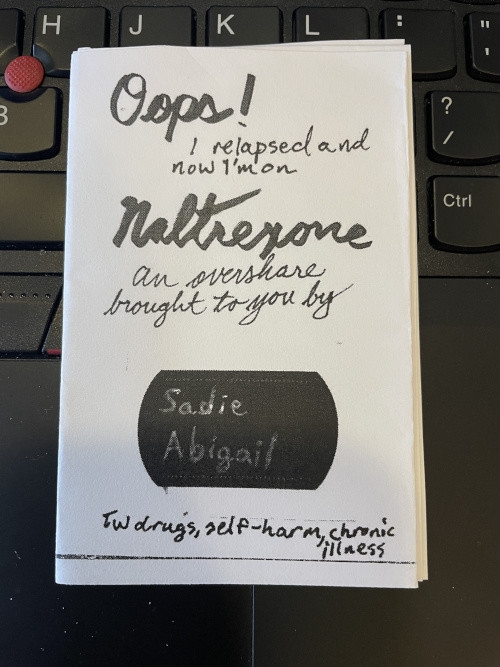 H J K L :
"
'
B
?
/
Ctrl
Oops!
I relapsed and
now I'm on
Naltrexone
an overshare
brought to you by
Sadie
Abigail
TW drugs, self-harm, chronic
illness